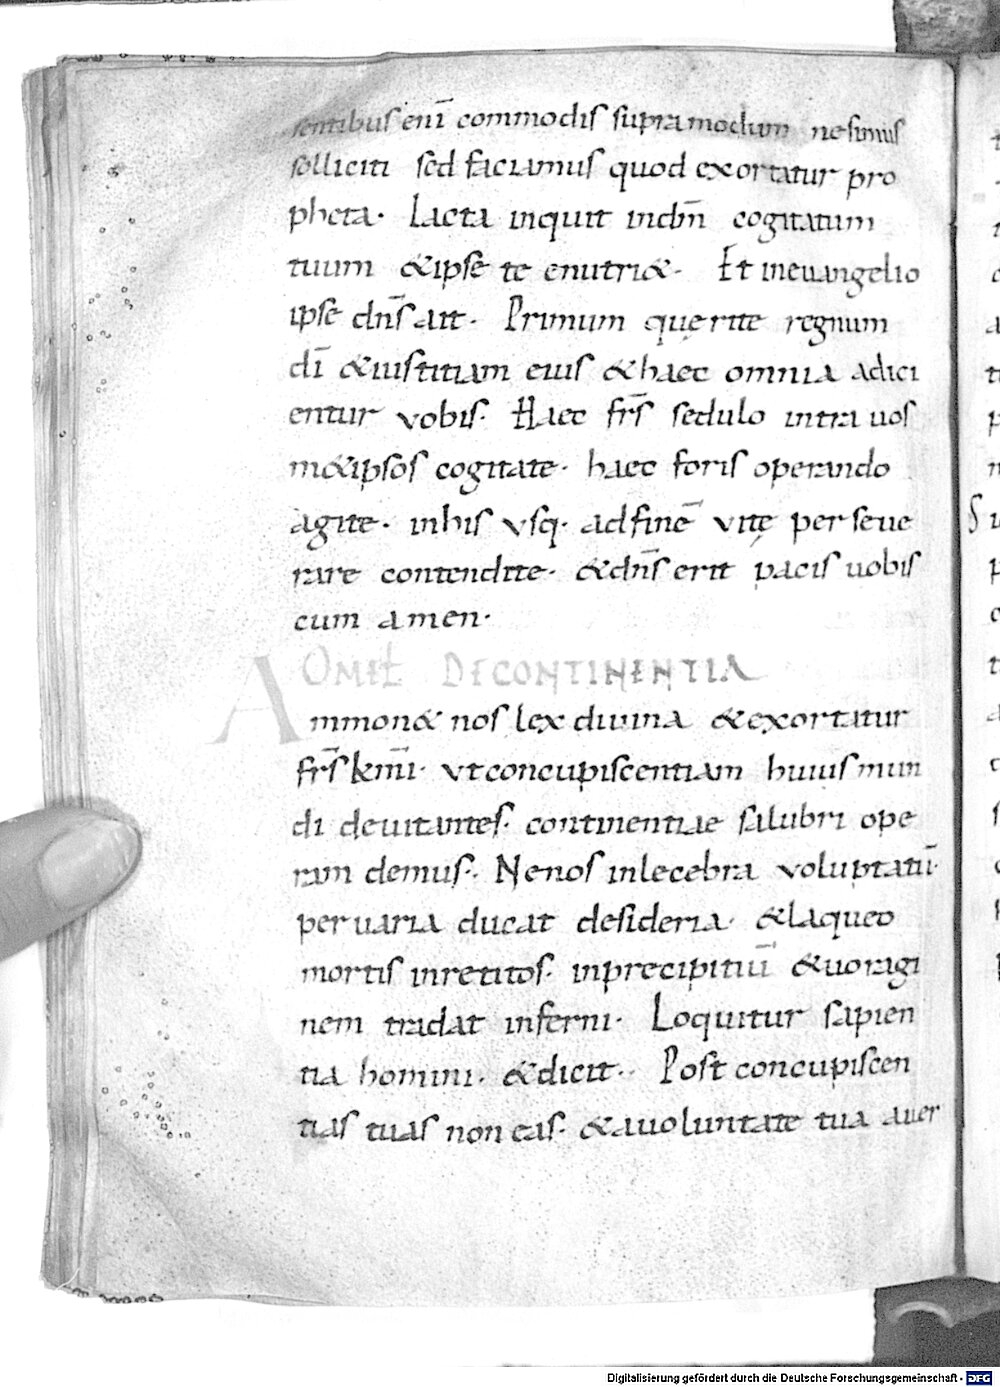 sentibus enī commodis supramodum nesimus
solliciti sed faciamus quod exortatur pro
pheta· Iacta inquit indn̄m cogitatum
tuum &ipse te enutri&· Et ineuangelio
ipse dn̄s ait· Primum quęrite regnum
dī &iustitiam eius &haec omnia adici
entur vobis· Haec fr̄s sedulo intra uos
m&ipsos cogitate· haec foris operando
agite· inhis vsq· adfinē vitę perseue
rare contendite· &dn̄s erit pacis uobis
cum amen·
OMIL DECONTINENTIA
Ammon& nos lex diuina &exortatur
fr̄s km̄i· vtconcupiscentiam huiusmun
di deuitantes· continentiae salubri ope
ram demus· Nenos inlecebra voluptatū·
peruaria ducat desideria· &laqueo
mortis inretitos· inprecipitiū &uoragi
nem tradat inferni· Loquitur sapien
tia homini· &dicit· Post concupiscen
tias tuas non eas· &auoluntate tua auer
Digitalisierung gefördert durch die Deutsche Forschungsgemeinschaft - DFG